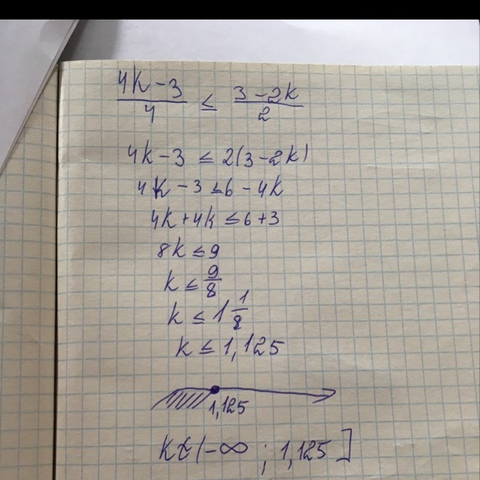 4k-3/4 ≤ 3-2k/2
4k-3 ≤ 2(3-2k)
4k-3 ≤ 6-4k
4k+4k ≤ 6+3
8k ≤ 9
k ≤ 9/8
k ≤ 1 1/8
k ≤ 1,125
1,125
k∈(-∞ ; 1,125]